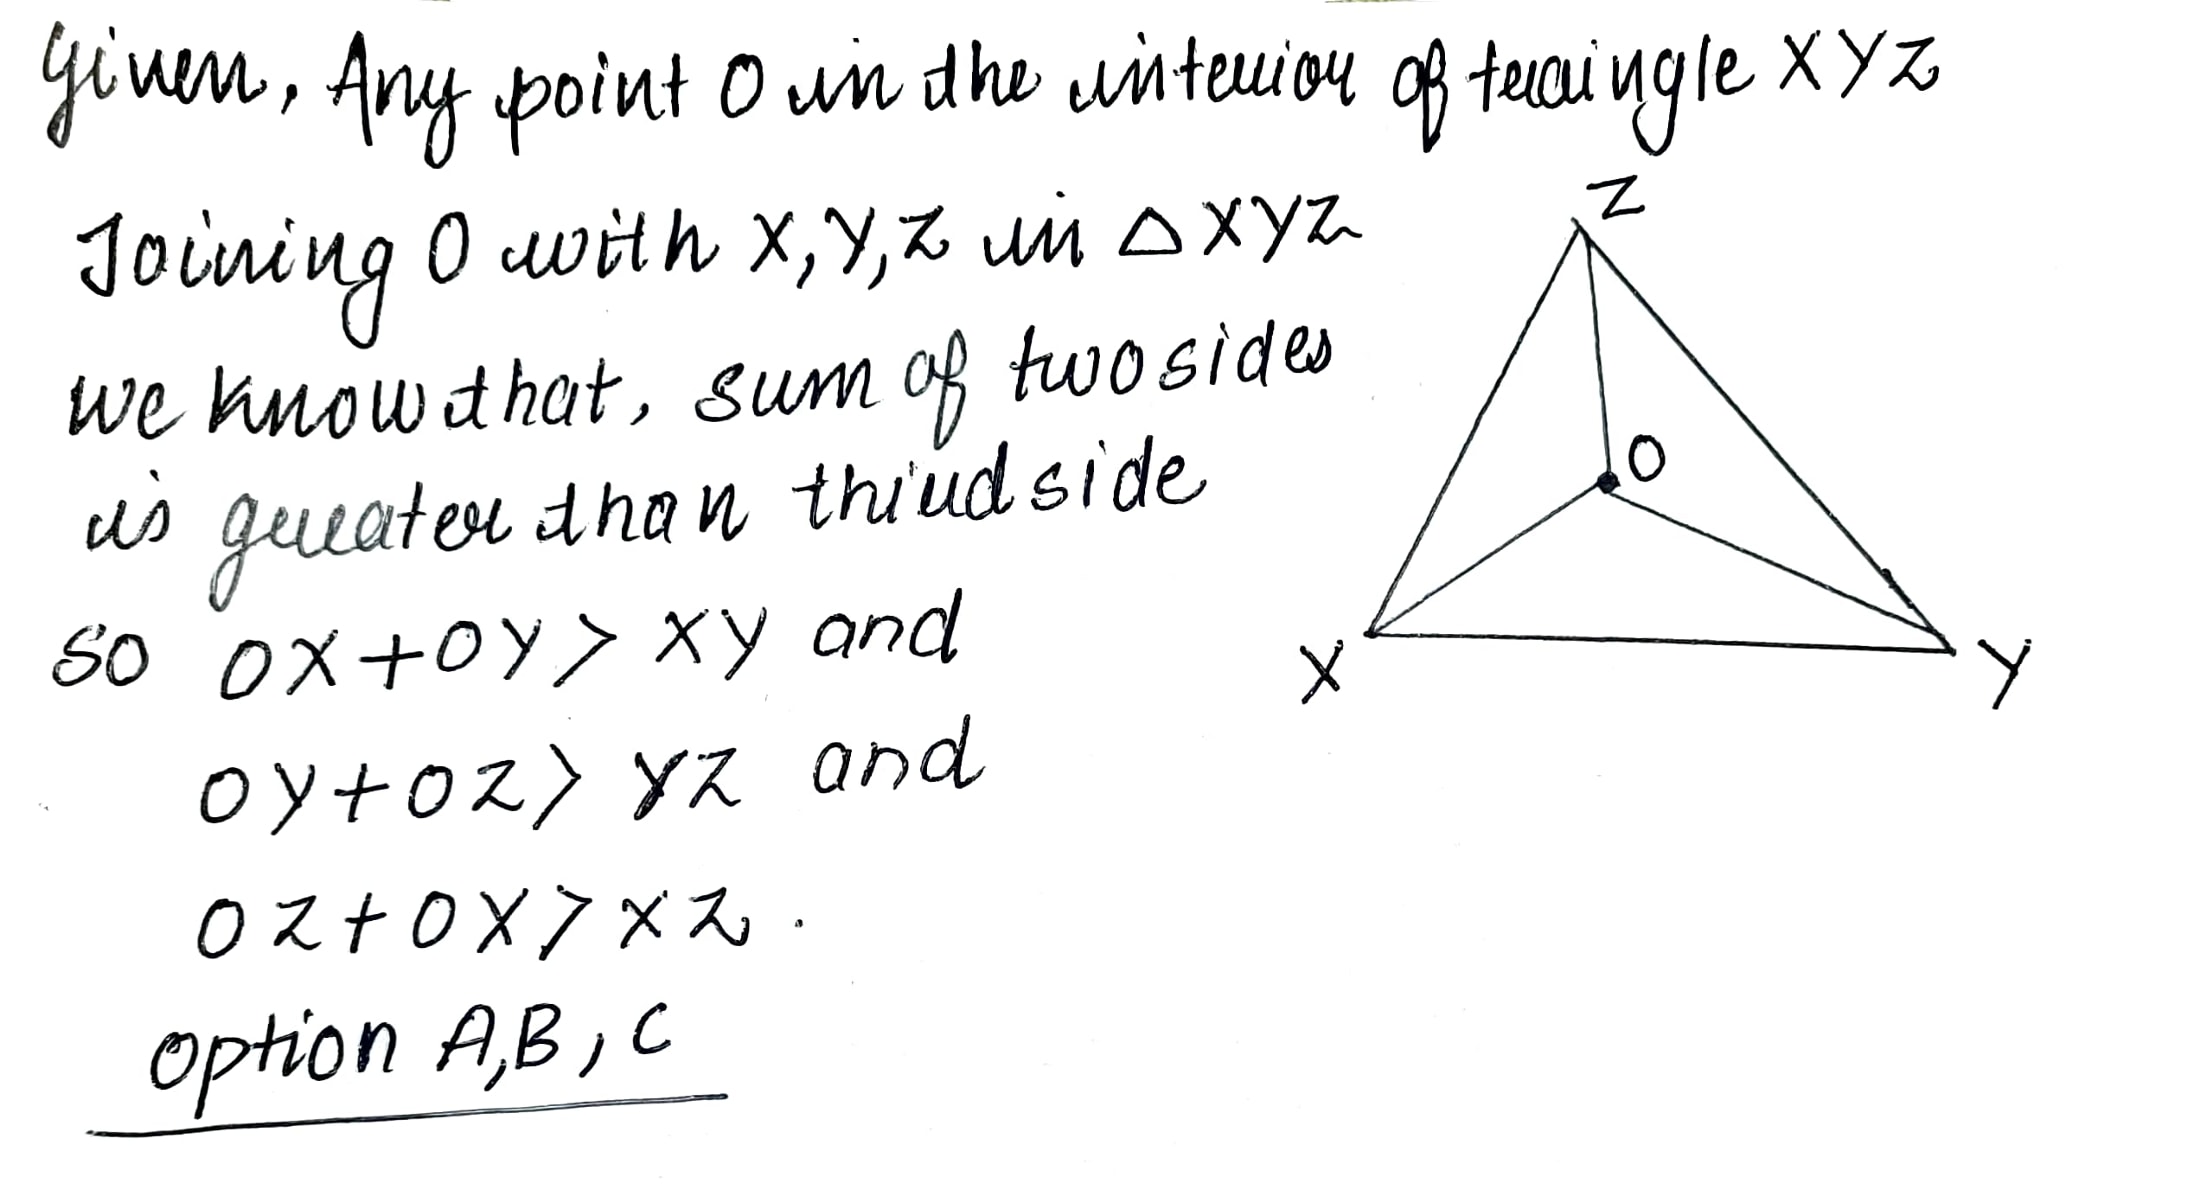 Given, Any point O in the interior of traingle XYZ
Joining O with X,Y,Z in △XYZ
we know that, sum of two sides
is greater than third side
so OX+OY> XY and
OY+OZ> YZ and
OZ+OX> XZ.
option A,B,C
Z
O
X
Y